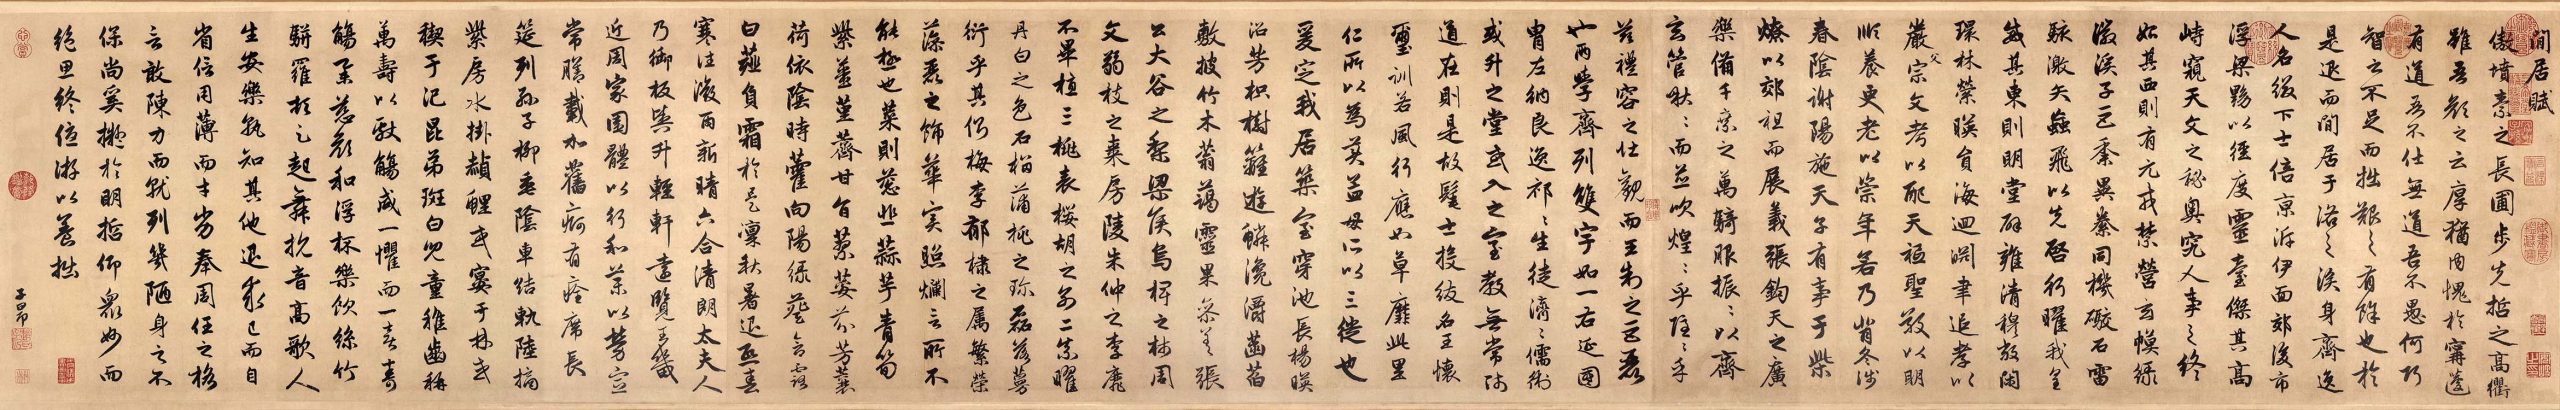 閒居賦
傲墳素之長圃步先哲之高衢
雖吾顏之云厚猶內愧於甯蘧
有道吾不仕無道吾不愚何巧
智之不足而拙艱之有餘也於
是退而閒居于洛之涘身齊逸
人名綴下士倍京泝伊面郊後市
浮梁黝以徑度靈臺傑其高
峙窺天文之祕奧究人事之終
始其西則有元戎禁營玄幙綠
徽谿子巨黍異絭同機礮石雷
駭激矢蝱飛以先啓行曜我皇
威其東則明堂辟雍清穆敞閑
環林縈暎負海迴淵聿追孝以
嚴父宗文考以配天祗聖敬以明
順養更老以崇年若乃背冬涉
春陰謝陽施天子有事于柴
燎以郊祖而展義張鈞天之廣
樂備千乘之萬騎服振〻以齊
玄管啾〻而並吹煌〻乎隱〻乎
茲禮容之壯觀而王制之巨麗
也兩學齊列雙宇如一右延國
胄左納良逸祁〻生徒濟〻儒術
或升之堂或入之室教無常師
道在則是故髦士投紱名王懷
璽訓若風行應如草靡此里
仁所以為美孟母所以三徙也
爰定我居築室穿池長楊暎
沼芳枳樹籬遊鱗瀺灂菡萏
敷披竹木蓊藹靈果參差張
公大谷之梨梁侯烏椑之柿周
文弱枝之棗房陵朱仲之李靡
不畢植三桃表櫻胡之別二柰曜
丹白之色石榴蒲桃之珍磊落蔓
衍乎其側梅李郁棣之屬繁榮
藻麗之飾華實照爛言所不
能極也菜則葱韭蒜芋青筍
紫薑堇薺甘旨蓼荽芬芳蘘
荷依陰時藿向陽綠葵含露
白薤負霜於是凜秋暑退熙春
寒往微雨新晴六合清朗太夫人
乃御板輿升輕軒遠覽王畿
近周家園體以行和藥以勞宣
常膳載加舊痾有痊席長
筵列孫子柳垂陰車結軌陸摘
紫房水掛赬鯉或宴于林或
禊于汜昆弟斑白兒童稚齒稱
萬壽以獻觴咸一懼而一喜壽
觴舉慈顏和浮杯樂飲絲竹
駢羅頓足起舞抗音高歌人
生安樂孰知其他退求己而自
省信用薄而才劣奉周任之格
言敢陳力而就列幾陋身之不
保尚奚擬於明哲仰眾妙而
絕思終優游以養拙
子昂